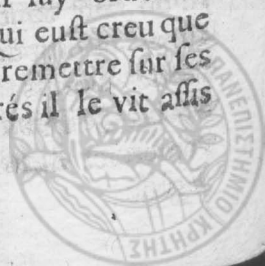 ui eust creu que
remettre sur ses
rés il le vit assis
ΠΑΝΕΠΙΣΤΗΜΙΟ ΚΡΗΤΗΣ